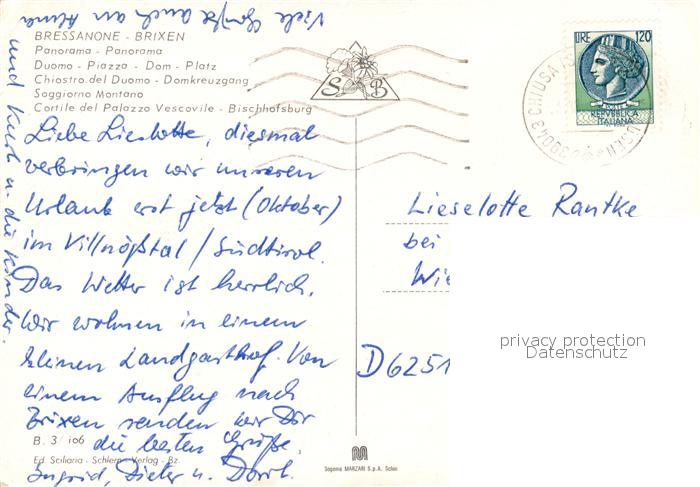 Viele Grüße auch an Anna
und Kurt u. die Kinder.
BRESSANONE - BRIXEN
Panorama - Panorama
Duomo - Piazza - Dom - Platz
Chiostro del Duomo - Domkreuzgang
Soggiorno Montano
Cortile del Palazzo Vescovile - Bischhofsburg
S B
LIRE 120
REPVBBLICA
ITALIANA
39043 CHIUSA
Liebe Lieslotte, diesmal
verbringen wir unseren
Urlaub erst jetzt (Oktober)
im Villnößtal / Südtirol.
Das Wetter ist herrlich.
Wir wohnen in einem
kleinen Landgasthof. Von
einem Ausflug nach
Brixen senden wir Dir
die besten Grüße
Ingrid, Dieter u. Dorit.
Lieselotte Rantke
bei
Wie
D6251
privacy protection
Datenschutz
B. 3/106
Ed. Sciliaria - Schlern - Verlag - Bz.
3
Sagoma MARZARI S.p.A. Schio